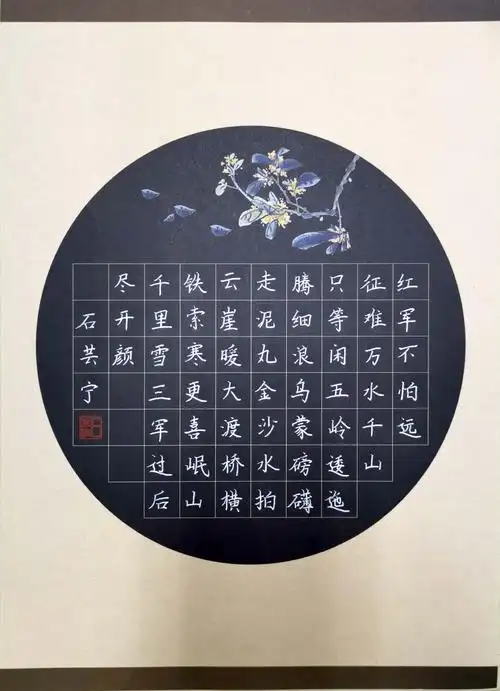 红军不怕远
征难万水千山
只等闲五岭逶迤
腾细浪乌蒙磅礴
走泥丸金沙水拍
云崖暖大渡桥横
铁索寒更喜岷山
千里雪三军过后
尽开颜
石芸宁